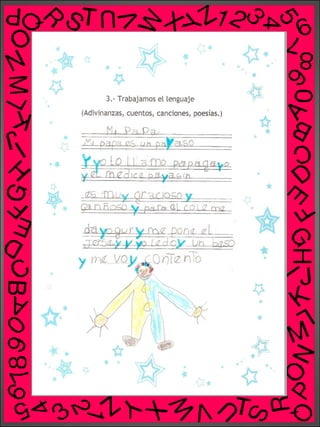 3.- Trabajamos el lenguaje
(Adivinanzas, cuentos, canciones, poesías.)
Mi PaPa
Mi papa es un payaso
Y yo lo llamo papagayo
y el medice payasin
es muy gracioso y
cariñoso y para el cole me
da yogur y me pone el
jersey y yo ledoy un beso
y me voy contento